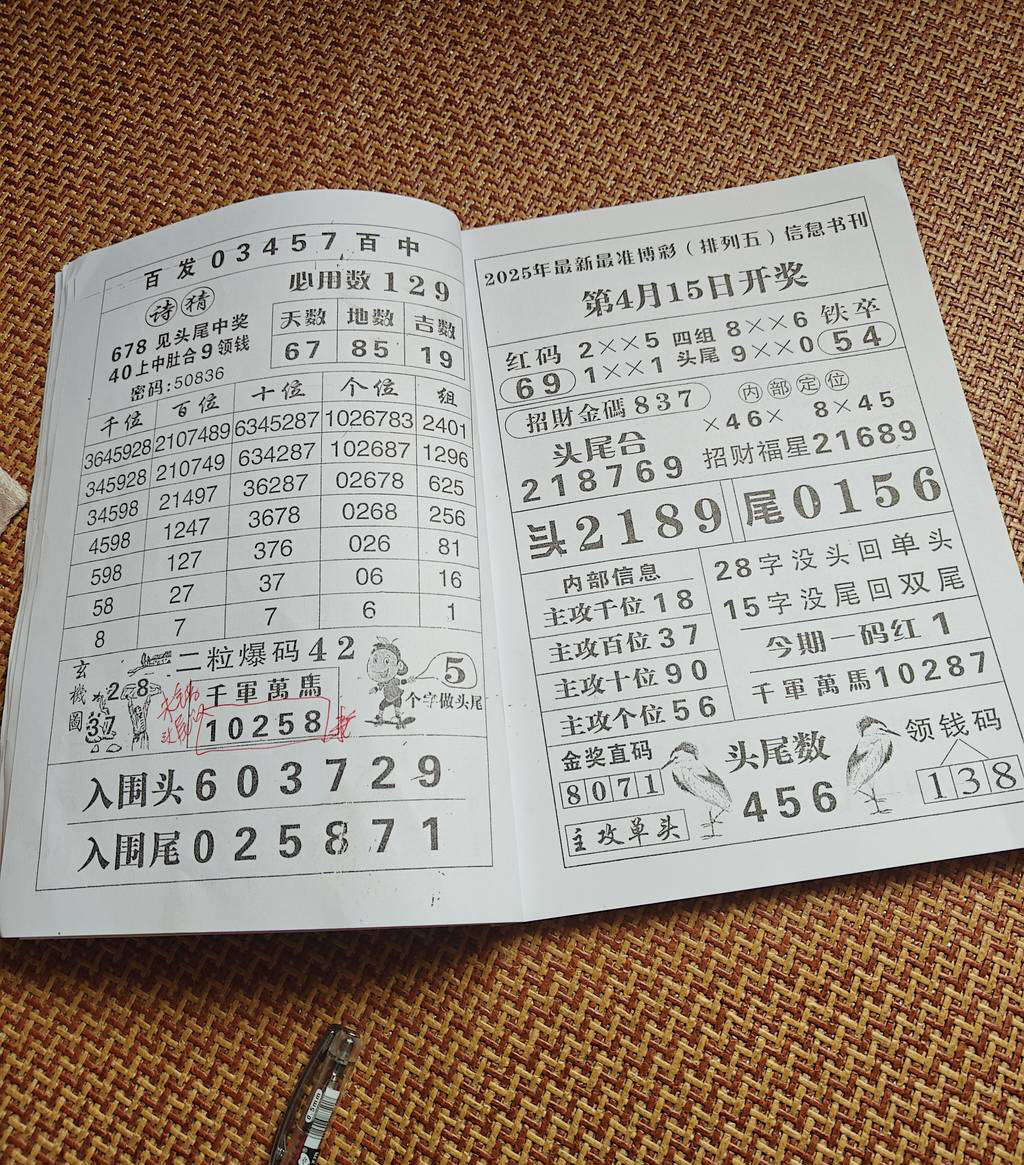 百发03457百中
诗猜
必用数129
678见头尾中奖
40上中肚合9领钱
密码:50836
天数 地数 吉数
67 85 19
千位 百位 十位 个位 组
3645928 2107489 6345287 1026783 2401
345928 210749 634287 102687 1296
34598 21497 36287 02678 625
4598 1247 3678 0268 256
598 127 376 026 81
58 27 37 06 16
8 7 7 6 1
玄機圖
28
37
二粒爆码42
千軍萬馬
10258
5
个字做头尾
入围头603729
入围尾025871
2025年最新最准博彩（排列五）信息书刊
第4月15日开奖
红码 2××5 四组 8××6 铁卒
69 1××1 头尾 9××0 54
招財金碼837
内部定位
×46× 8×45
头尾合
218769
招财福星21689
头2189
尾0156
内部信息
主攻千位18
主攻百位37
主攻十位90
主攻个位56
28字没头回单头
15字没尾回双尾
今期一码红1
千軍萬馬10287
金奖直码
8071
主攻单头
头尾数
456
领钱码
138
0.5mm